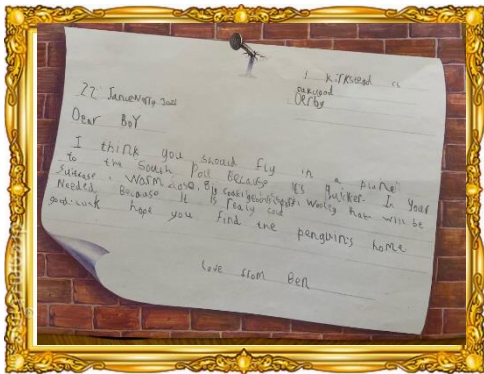 1 kirkstead
oakwood
Derby
22 January 2021
Dear Boy
I think you should fly in a plane
to the South Poll Because it's quicker. In Your
Suitcase, warm close, Big coat, woolly hat will be
Needed, Because It is realy cold
good-work hope you find the penguins home
Love from Ben